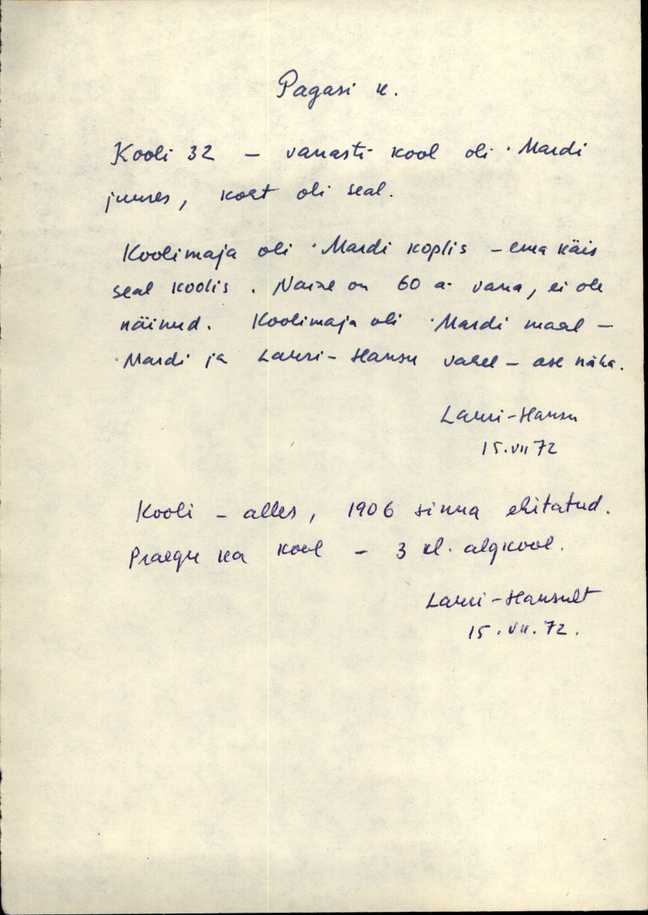 Pagasi k.
Kooli 32 – vanasti kool oli ·Mardi
juures, koht oli seal.
Koolimaja oli ·Mardi koplis – ema käis
seal koolis. Naine on 60 a. vana, ei ole
näinud. Koolimaja oli ·Mardi maal –
·Mardi ja Lauri-Hansu vahel – ase näha.
Lauri-Hansu
15.VII 72
Kooli – alles, 1906 sinna ehitatud.
Praegu ka kool – 3 kl. algkool.
Lauri-Hansult
15.VII.72.